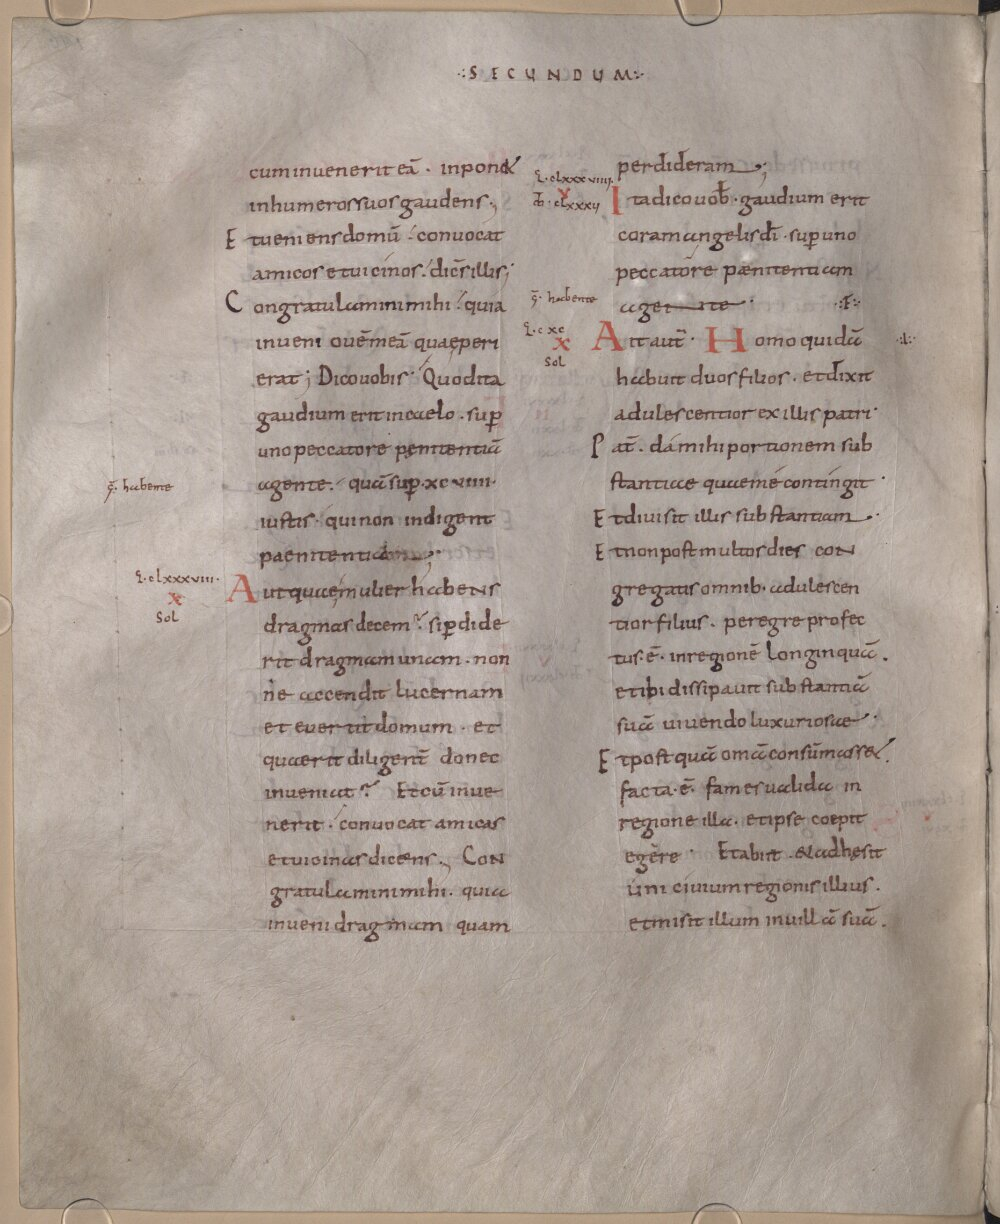 ·:SECUNDUM:·
cum invenerit eā · inpon&
in humeros suos gaudens ;
Et veniens domū · convocat
amicos et vicinos · dicēs illis ;
Congratulamini mihi · quia
inveni ovē meā quae peri
erat ; Dico vobis · Quod ita
gaudium erit in caelo · suꝑ
uno peccatore penitentiā
agente · quā suꝑ · xcviiii ·
iustis · qui non indigent
paenitentiam ;
q̄ · habente
q̄ · clxxxviii ·
x
Sol
Aut quae mulier habens
dragmas decem · si ꝑdide
rit dragmam unam · non
ne accendit lucernam
et evertit domum · et
quaerit diligent̄ donec
inveniat · Et cū inve
nerit · convocat amicas
et vicinas dicens ; Con
gratulamini mihi · quia
inveni dragmam quam
perdideram ;
· clxxxviiii ·
v
· clxxxij
Ita dico vob̄ · gaudium erit
coram angelis dī · suꝑ uno
peccatore paenitentiam
agente ·
:F:
q̄ · habente
· cxc
x
Sol
Ait aut̄ · Homo quidā
habuit duos filios · et dixit
adulescentior ex illis patri ·
Pat̄ · da mihi portionem sub
stantiae quae me contingit ·
Et divisit illis substantiam ·
Et non post multos dies con
gregatis omnib · adulescen
tior filius · peregre profec
tus · ē · in regionē longinquā .
et ibi dissipavit substantiā
suā vivendo luxuriosae ·
Et post quā omā consūmass& .
facta · ē · fames valida in
regione illa · et ipse coepit
egere · Et abiit · & adhęsit
uni civium regionis illius .
et misit illum in villā suā .